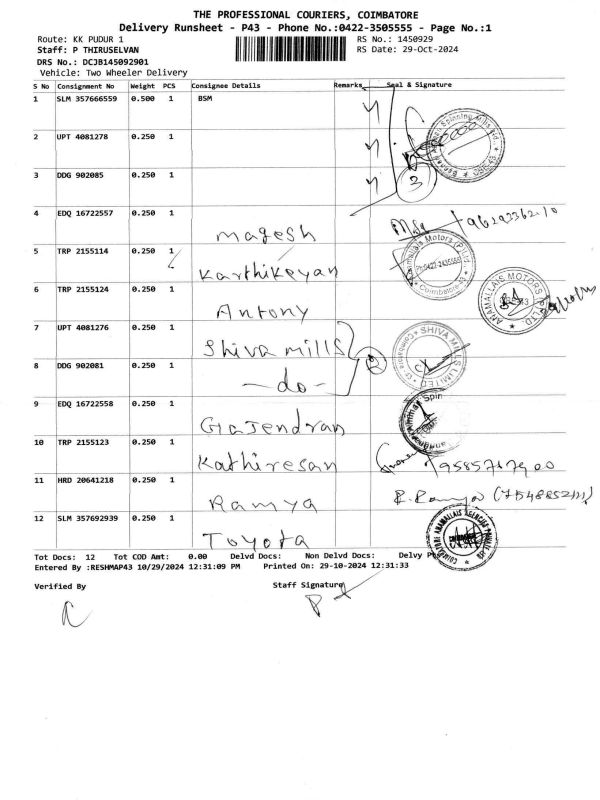 THE PROFESSIONAL COURIERS, COIMBATORE
Delivery Runsheet - P43 - Phone No.:0422-3505555 - Page No.:1
Route: KK PUDUR 1 RS No.: 1450929
Staff: P THIRUSELVAN RS Date: 29-Oct-2024
DRS No.: DCJB145092901
Vehicle: Two Wheeler Delivery
S No Consignment No Weight PCS Consignee Details Remarks Seal & Signature
1 SLM 357666559 0.500 1 BSM
2 UPT 4081278 0.250 1
3 DDG 902085 0.250 1
3
4 EDQ 16722557 0.250 1 magesh
5 TRP 2155114 0.250 1 Karthikeyan
6 TRP 2155124 0.250 1 Antony
ANAMALLAIS MOTORS
7 UPT 4081276 0.250 1 Shiva mills
SHIVA MILLS LIMITED
2
8 DDG 902081 0.250 1 -do-
9 EDQ 16722558 0.250 1 Gajendran
10 TRP 2155123 0.250 1 Kathiresan
11 HRD 20641218 0.250 1 Ramya R. Ramya
12 SLM 357692939 0.250 1 Toyota
COIMBATORE ANAMALLAIS AGENCIES
Tot Docs: 12 Tot COD Amt: 0.00 Delvd Docs: Non Delvd Docs: Delvy
Entered By :RESHMAP43 10/29/2024 12:31:09 PM Printed On: 29-10-2024 12:31:33
Verified By Staff Signature